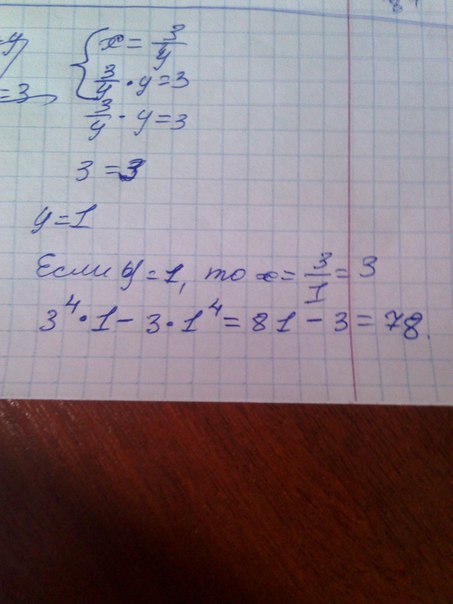 y
=3
{ x = 3/y
3/y · y = 3
3/y · y = 3
3 = 3
y = 1
Если y = 1, то x = 3/1 = 3
3⁴ · 1 – 3 · 1⁴ = 81 – 3 = 78.